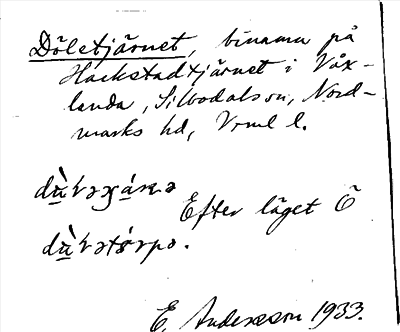 Döletjärnet, binamn på
Hackstadtjärnet i Våx-
landa, Silbodals sn, Nord-
marks hd, Vrml l.
Efter läget Ö
E. Andersson 1933.